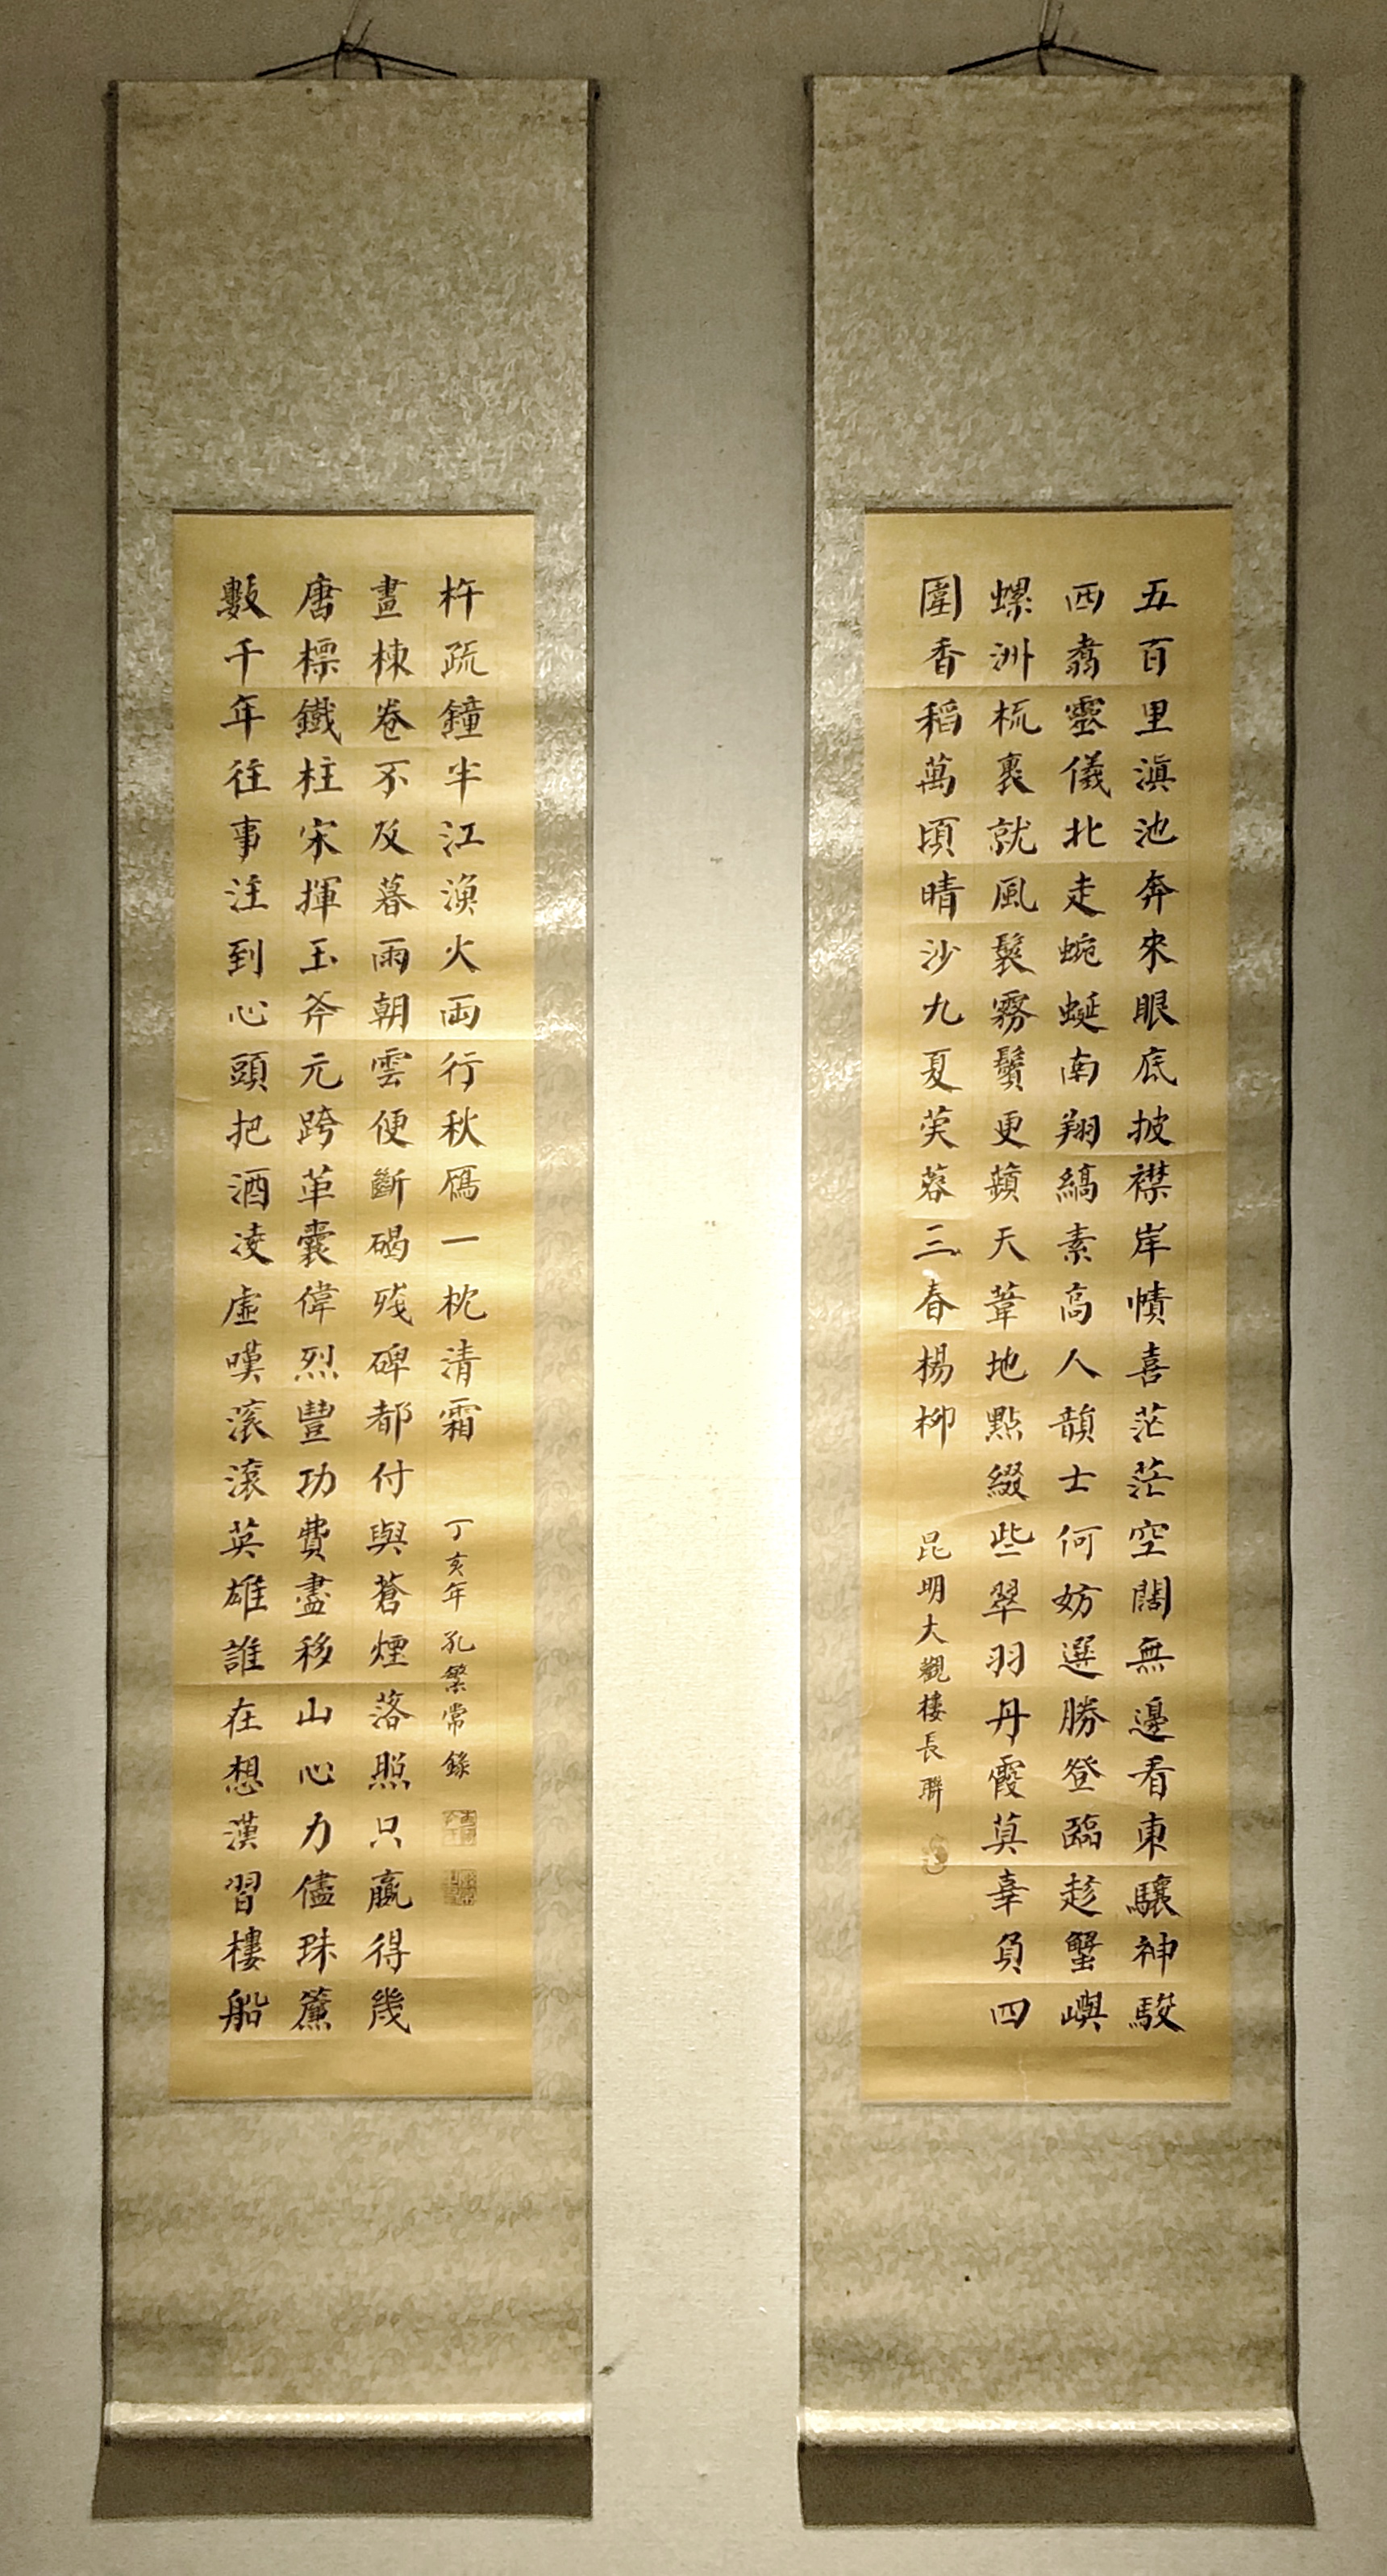 五百里滇池奔來眼底披襟岸幘喜茫茫空闊無邊看東驤神駿
西翥靈儀北走蜿蜒南翔縞素高人韻士何妨選勝登臨趁蟹嶼
螺洲梳裹就風鬟霧鬢更蘋天葦地點綴些翠羽丹霞莫辜負四
圍香稻萬頃晴沙九夏芙蓉三春楊柳
昆明大觀樓長聯
數千年往事注到心頭把酒凌虛嘆滾滾英雄誰在想漢習樓船
唐標鐵柱宋揮玉斧元跨革囊偉烈豐功費盡移山心力儘珠簾
畫棟卷不及暮雨朝雲便斷碣殘碑都付與蒼煙落照只贏得幾
杵疏鐘半江漁火兩行秋雁一枕清霜
丁亥年孔繁常錄